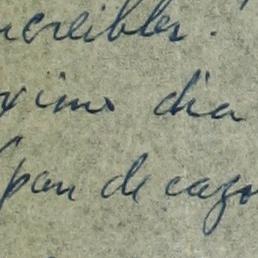 ncreibles.
ximo dia
pan de cazo